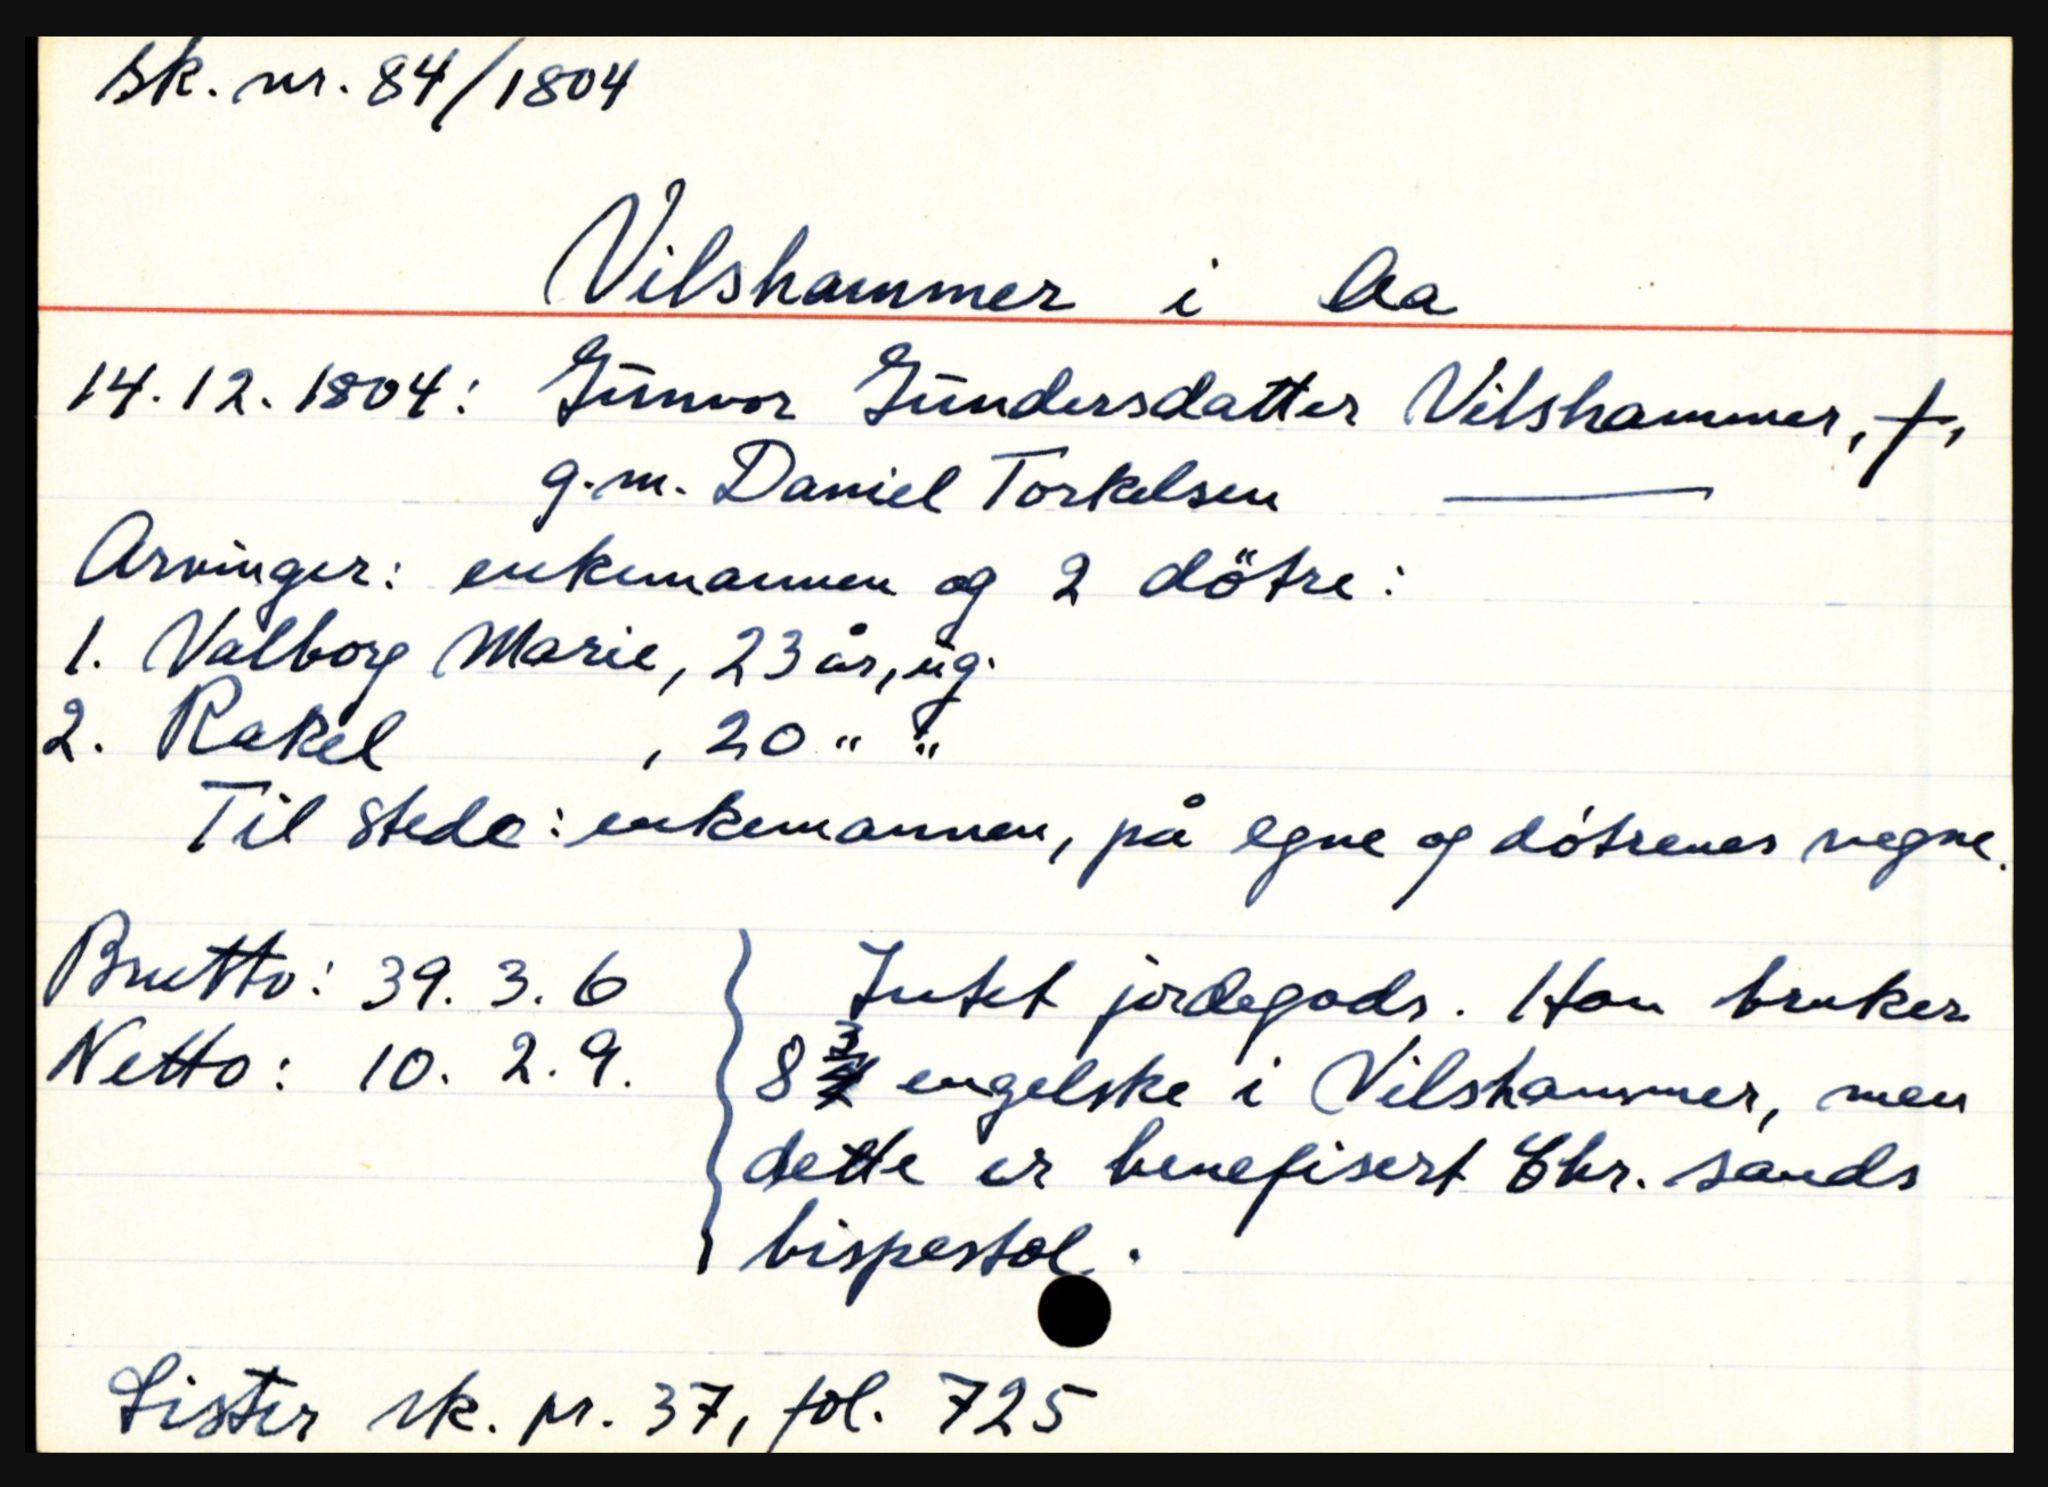 sk. nr. 84/1804
Vilshammer i Aa
14.12.1804: Gunvor Gundersdatter Vilshammer, †,
g.m. Daniel Torkelsen ———
Arvinger: enkemannen og 2 dötre:
1. Valborg Marie, 23 år, ug.
2. Rakel , 20 " "
Til stede: enkemannen, på egne og dótrenes vegne.
Brutto: 39. 3. 6
Netto: 10. 2. 9.
Intet jordegods. Han bruker
8 engelske i Vilshammer, men
dette er benefisert Chr. sands
bispestol.
Lister sk. pr. 37, fol. 725